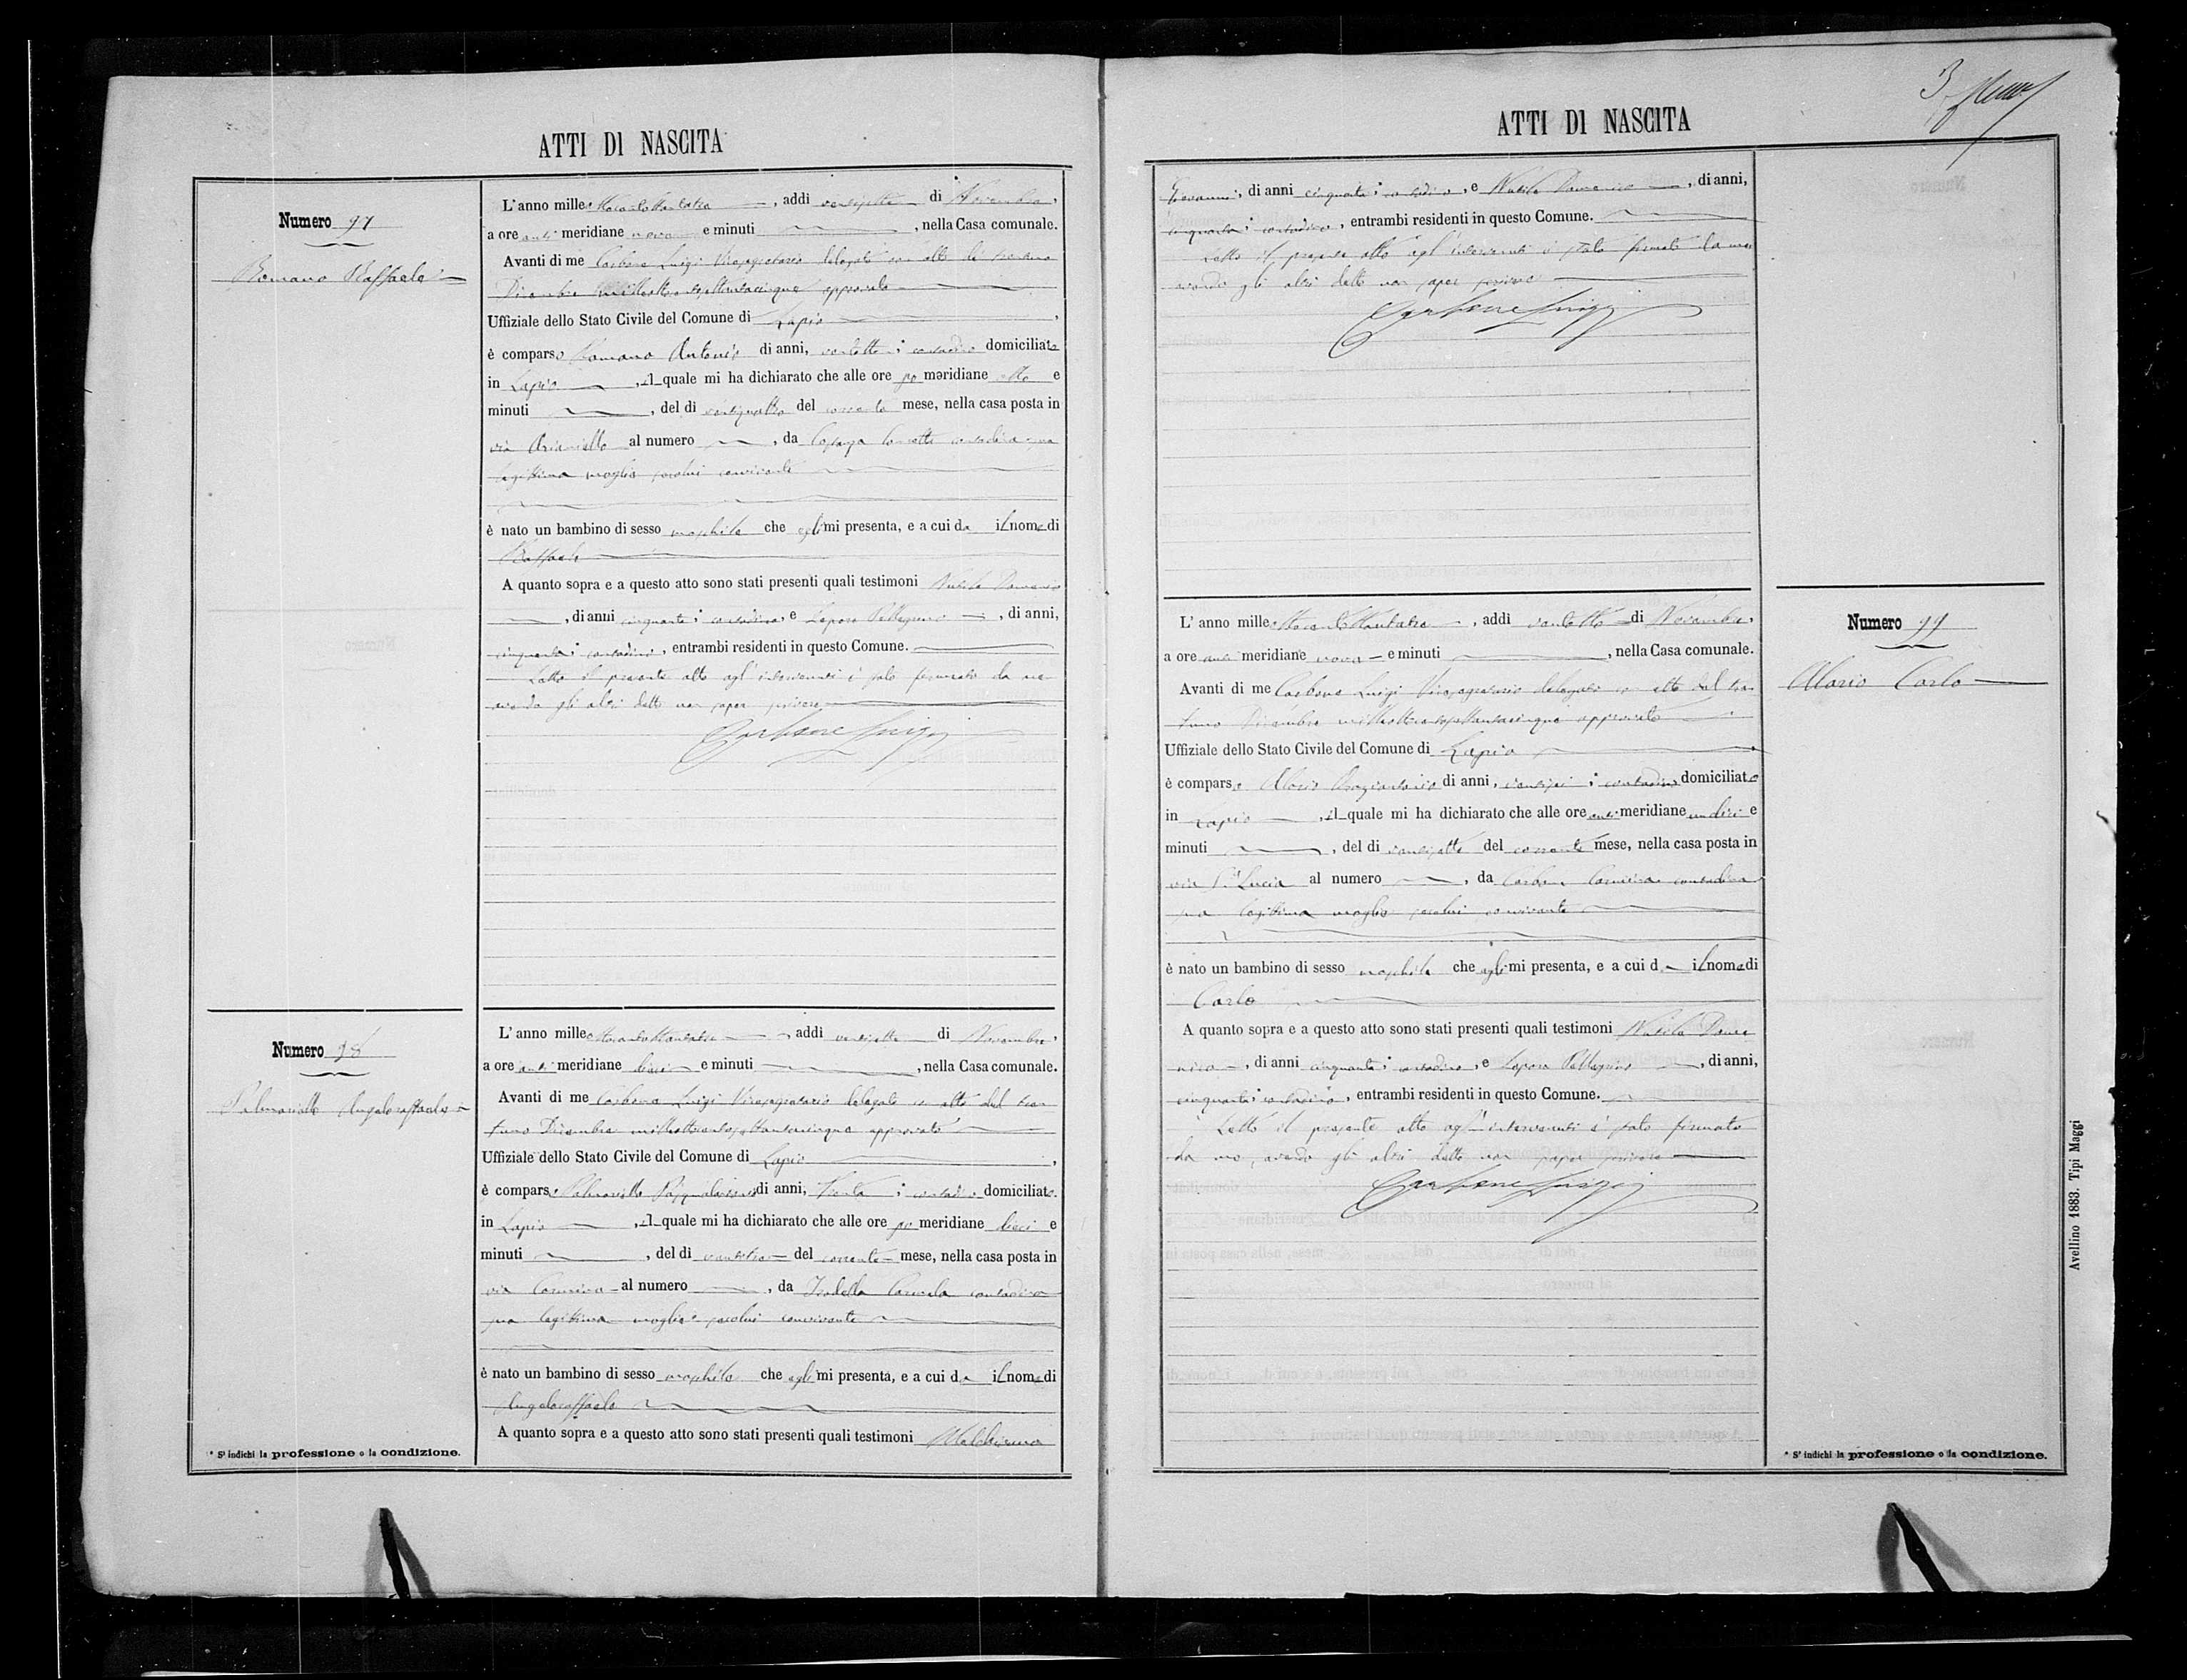 ATTI DI NASCITA
Numero 97
Romano Raffaele
L'anno milleottocentottantatre, addi ventisette di Novembre,
a ore anti meridiane nove e minuti , nella Casa comunale.
Avanti di me Carbone Luigi Vicesegretario delegato con atto del trentuno
Dicembre milleottocentosettantacinque approvato
Uffiziale dello Stato Civile del Comune di Lapio,
è comparso Romano Antonio di anni, ventotto; contadino domiciliato
in Lapio, il quale mi ha dichiarato che alle ore po meridiane otto e
minuti , del di ventiquattro del corrente mese, nella casa posta in
via Arianiello al numero , da contadina sua
legittima moglie secolui convivente
è nato un bambino di sesso maschile che egli mi presenta, e a cui da il nome di
Raffaele
A quanto sopra e a questo atto sono stati presenti quali testimoni Nusilo Domenico
, di anni cinquanta; contadino, e Lapore Pellegrino , di anni,
cinquanta; contadino, entrambi residenti in questo Comune.
Letto il presente atto agl'intervenuti è stato firmato da me
avendo gli altri detto non saper scrivere
Carbone Luigi
Numero 98
Palmariello Angeloraffaele
L'anno milleottocentottantatre, addi ventisette di Novembre,
a ore anti meridiane dieci e minuti , nella Casa comunale.
Avanti di me Carbone Luigi Vicesegretario delegato con atto del tren
tuno Dicembre milleottocentosettantacinque approvato
Uffiziale dello Stato Civile del Comune di Lapio,
è comparso Palmariello di anni, trenta; contadino domiciliato
in Lapio, il quale mi ha dichiarato che alle ore po meridiane dieci e
minuti , del di ventitre del corrente mese, nella casa posta in
via al numero , da Carmela contadina
sua legittima moglie secolui convivente
è nato un bambino di sesso maschile che egli mi presenta, e a cui da il nome di
Angeloraffaele
A quanto sopra e a questo atto sono stati presenti quali testimoni
* S'indichi la professione o la condizione.
ATTI DI NASCITA
Giovanni, di anni cinquanta; contadino, e Nusilo Domenico , di anni,
cinquanta; contadino, entrambi residenti in questo Comune.
Letto il presente atto agl'intervenuti è stato firmato da me
avendo gli altri detto non saper scrivere
Carbone Luigi
L'anno milleottocentottantatre, addi ventotto di Novembre,
a ore anti meridiane nove e minuti , nella Casa comunale.
Avanti di me Carbone Luigi Vicesegretario delegato con atto del tren
tuno Dicembre milleottocentosettantacinque approvato
Uffiziale dello Stato Civile del Comune di Lapio
è comparso di anni, ventisei; contadino domiciliato
in Lapio, il quale mi ha dichiarato che alle ore anti meridiane undici e
minuti , del di ventisette del corrente mese, nella casa posta in
via Sa Lucia al numero , da Carbone contadina
sua legittima moglie secolui convivente
è nato un bambino di sesso maschile che egli mi presenta, e a cui da il nome di
Carlo
A quanto sopra e a questo atto sono stati presenti quali testimoni Nusilo Dome
nico, di anni cinquanta; contadino, e Lapore Pellegrino , di anni,
cinquanta; contadino, entrambi residenti in questo Comune.
Letto il presente atto agl'intervenuti è stato firmato
da me, avendo gli altri detto non saper scrivere
Carbone Luigi
Numero 99
Carlo
* S'indichi la professione o la condizione.
Avellino 1883. Tipi Maggi